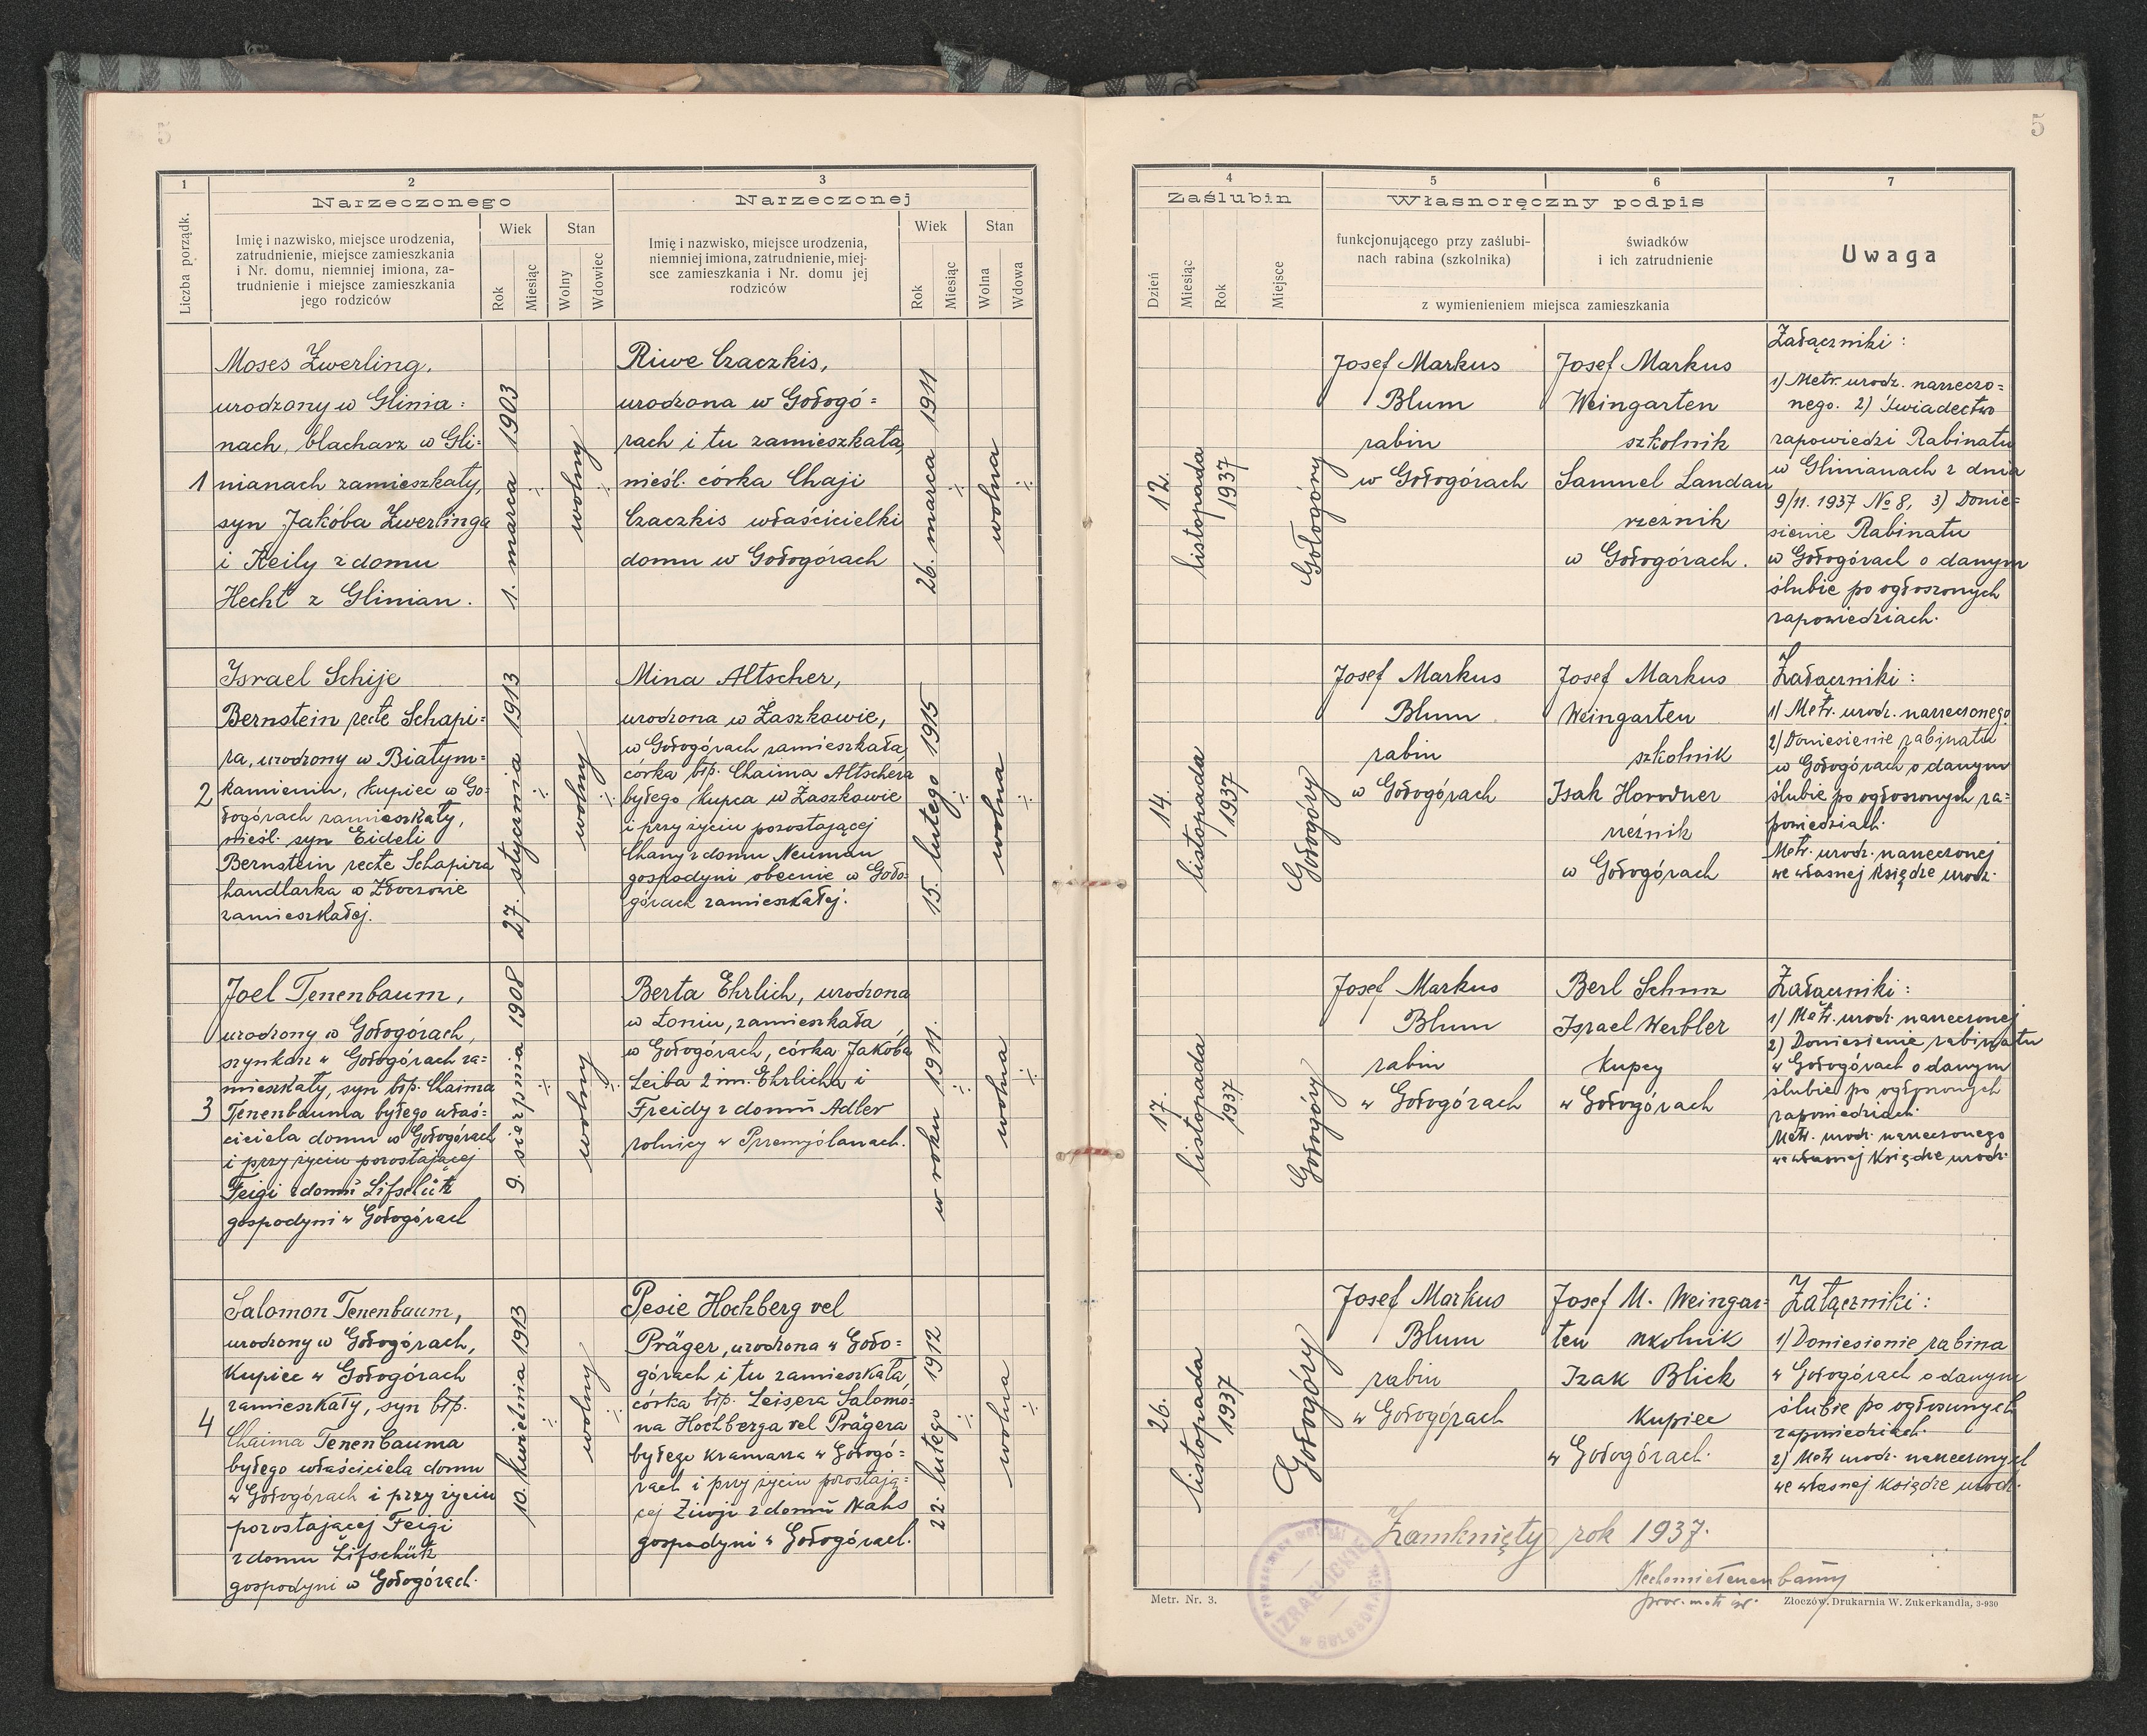 5
5
1
2
3
Narzeczonego
Narzeczonej
Liczba porządk.
Imię i nazwisko, miejsce urodzenia,
zatrudnienie, miejsce zamieszkania
i Nr. domu, niemniej imiona, za-
trudnienie i miejsce zamieszkania
jego rodziców
Wiek
Rok
Miesiąc
Stan
Wolny
Wdowiec
Imię i nazwisko, miejsce urodzenia,
niemniej imiona, zatrudnienie, miej-
sce zamieszkania i Nr. domu jej
rodziców
Wiek
Rok
Miesiąc
Stan
Wolna
Wdowa
4
5
6
7
Zaślubin
Własnoręczny podpis
Dzień
Miesiąc
Rok
Miejsce
funkcjonującego przy zaślubi-
nach rabina (szkolnika)
świadków
i ich zatrudnienie
z wymienieniem miejsca zamieszkania
Uwaga
1
Moses Zwerling,
urodzony w Glinia=
nach, blacharz w Gli=
nianach zamieszkały,
syn Jakóba Zwerlinga
i Reily z domu
Hecht z Glinian.
1. marca 1903
wolny
Riwe Czaczkis,
urodzona w Gołogó=
rach i tu zamieszkała,
nieśl. córka Chaji
Czaczkis właścicielki
domu w Gołogórach
26. marca 1911
wolna
12.
listopada
1937
Gołogóry
Josef Markus
Blum
rabin
w Gołogórach
Josef Markus
Weingarten
szkolnik
Samuel Landau
rzeźnik
w Gołogórach.
Załączniki:
1) Metr. urodz. narzeczo=
nego. 2) Świadectwo
zapowiedzi Rabinatu
w Glinianach z dnia
9/11. 1937 № 8, 3) Donie=
sienie Rabinatu
w Gołogórach o danym
ślubie po ogłoszonych
zapowiedziach.
2
Israel Schije
Bernstein recte Schapi=
ra, urodzony w Białym=
kamieniu, kupiec w Go=
łogórach zamieszkały,
nieśl. syn Eideli
Bernstein recte Schapira
handlarka w Złoczowie
zamieszkałej.
27. stycznia 1913
wolny
Mina Altscher,
urodzona w Zaszkowie,
w Gołogórach zamieszkała
córka błp. Chaima Altschera
byłego kupca w Zaszkowie
i przy życiu pozostającej
Chany z domu Neuman
gospodyni obecnie w Goło=
górach zamieszkałej.
15. lutego 1915
wolna
14.
listopada
1937
Gołogóry
Josef Markus
Blum
rabin
w Gołogórach
Josef Markus
Weingarten
szkolnik
Isak Horodner
rzeźnik
w Gołogórach
Załączniki:
1) Metr. urodz. narzeczonego
2) Doniesienie rabinatu
w Gołogórach o danym
ślubie po ogłoszonych za=
powiedziach.
Metr. urodz. narzeczonej
we własnej księdze urodz.
3
Joel Tenenbaum,
urodzony w Gołogórach,
szynkarz w Gołogórach za=
mieszkały, syn błp. Chaima
Tenenbauma byłego właś=
ciciela domu w Gołogórach
i przy życiu pozostającej
Feigi z domu Lifschütz
gospodyni w Gołogórach
9. sierpnia 1908
wolny
Berta Ehrlich, urodzona
w Łoniu, zamieszkała
w Gołogórach, córka Jakóba
Leiba 2 im. Ehrlicha i
Freidy z domu Adler
rolnicy w Przemyślanach.
w roku 1911.
wolna
17.
listopada
1937
Gołogóry
Josef Markus
Blum
rabin
w Gołogórach
Berl Schnur
Israel Werbler
kupcy
w Gołogórach
Załączniki:
1) Metr. urodz. narzeczonej
2) Doniesienie rabinatu
w Gołogórach o danym
ślubie po ogłoszonych
zapowiedziach.
Metr. urodz. narzeczonego
we własnej księdze urodz.
4
Salomon Tenenbaum,
urodzony w Gołogórach,
kupiec w Gołogórach
zamieszkały, syn błp.
Chaima Tenenbauma
byłego właściciela domu
w Gołogórach i przy życiu
pozostającej Feigi
z domu Lifschütz
gospodyni w Gołogórach.
10. kwietnia 1913
wolny
Pesie Hochberg vel
Präger, urodzona w Goło=
górach i tu zamieszkała,
córka błp. Leisera Salomo=
na Hochberga vel Prägera
byłego kramarza w Gołogó=
rach i przy życiu pozostają=
cej Ziwji z domu Nahs
gospodyni w Gołogórach.
22. lutego 1912
wolna
26.
listopada
1937
Gołogóry
Josef Markus
Blum
rabin
w Gołogórach
Josef M. Weingar=
ten szkolnik
Izak Blick
kupiec
w Gołogórach.
Załączniki:
1) Doniesienie rabina
w Gołogórach o danym
ślubie po ogłoszonych
zapowiedziach.
2) Metr. urodz. narzeczonych
we własnej księdze urodz.
Zamknięty rok 1937.
IZRAELICKIE
Metr. Nr. 3.
Złoczów. Drukarnia W. Zukerkandla, 3-930